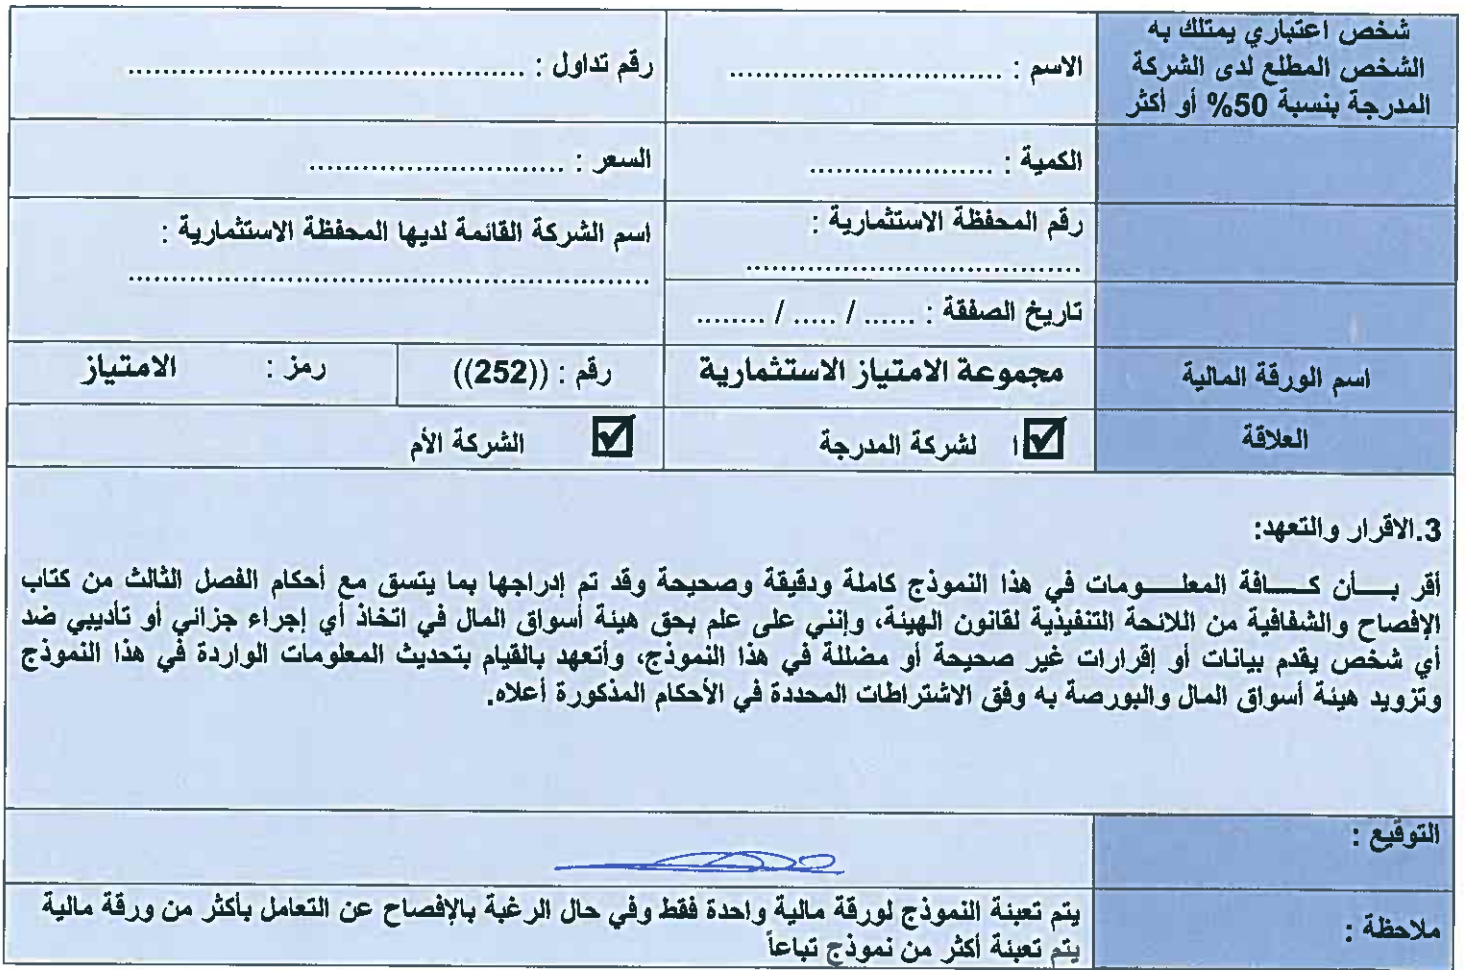 شخص اعتباري يمتلك به
الشخص المطلع لدى الشركة
المدرجة بنسبة 50% أو أكثر
الاسم : ..............................
رقم تداول : ............................................
الكمية : .....................
السعر : ............................
رقم المحفظة الاستثمارية :
.....................................
اسم الشركة القائمة لديها المحفظة الاستثمارية :
..........................................................
تاريخ الصفقة : ...... / ..... / ........
اسم الورقة المالية
مجموعة الامتياز الاستثمارية
رقم : ((252))
رمز : الامتياز
العلاقة
☑ ا لشركة المدرجة
☑ الشركة الأم
3.الاقرار والتعهد:
أقر بـــأن كــــافة المعلـــــومات في هذا النموذج كاملة ودقيقة وصحيحة وقد تم إدراجها بما يتسق مع أحكام الفصل الثالث من كتاب
الإفصاح والشفافية من اللائحة التنفيذية لقانون الهيئة، وإنني على علم بحق هيئة أسواق المال في اتخاذ أي إجراء جزائي أو تأديبي ضد
أي شخص يقدم بيانات أو إقرارات غير صحيحة أو مضللة في هذا النموذج، وأتعهد بالقيام بتحديث المعلومات الواردة في هذا النموذج
وتزويد هيئة أسواق المال والبورصة به وفق الاشتراطات المحددة في الأحكام المذكورة أعلاه.
التوقيع :
ملاحظة :
يتم تعبئة النموذج لورقة مالية واحدة فقط وفي حال الرغبة بالإفصاح عن التعامل بأكثر من ورقة مالية
يتم تعبئة أكثر من نموذج تباعاً